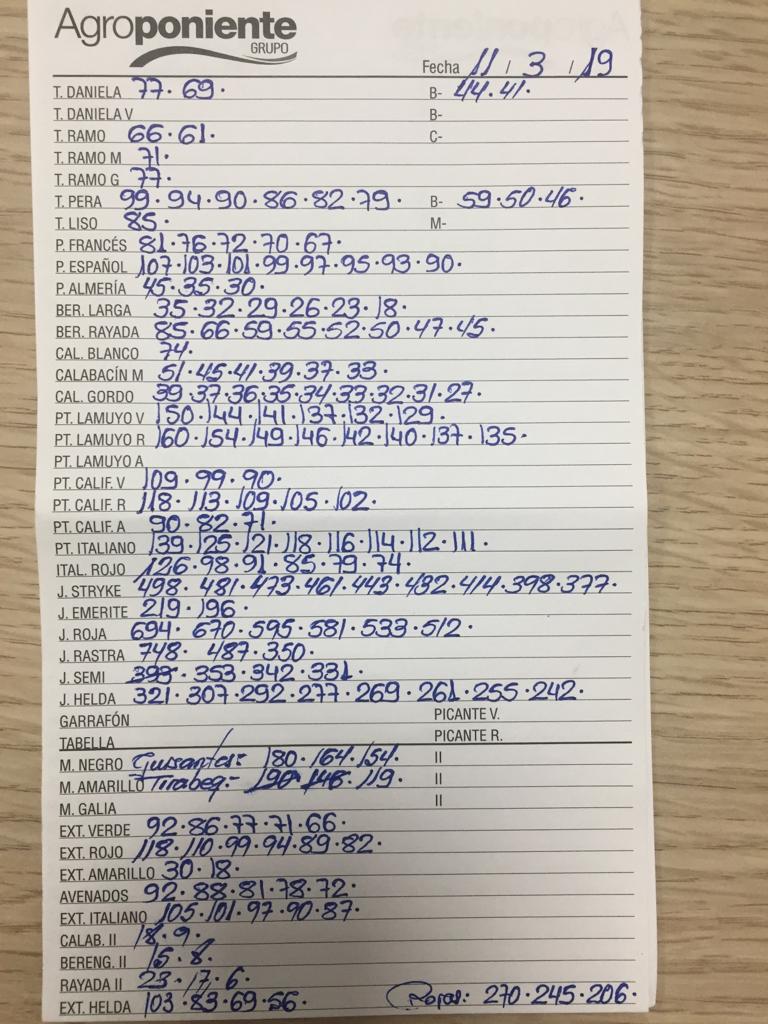 Agroponiente
GRUPO
Fecha 11 / 3 / 19
T. DANIELA 77· 69· B- 44·41·
T. DANIELA V B-
T. RAMO 66·61· C-
T. RAMO M 71·
T. RAMO G 77·
T. PERA 99·94·90·86·82·79· B- 59·50·46·
T. LISO 85· M-
P. FRANCÉS 81·76·72·70·67·
P. ESPAÑOL 107·103·101·99·97·95·93·90·
P. ALMERÍA 45·35·30·
BER. LARGA 35·32·29·26·23·18·
BER. RAYADA 85·66·59·55·52·50·47·45·
CAL. BLANCO 74·
CALABACÍN M 51·45·41·39·37·33·
CAL. GORDO 39·37·36·35·34·33·32·31·27·
PT. LAMUYO V 150·144·141·137·132·129·
PT. LAMUYO R 160·154·149·146·142·140·137·135·
PT. LAMUYO A
PT. CALIF. V 109·99·90·
PT. CALIF. R 118·113·109·105·102·
PT. CALIF. A 90·82·71·
PT. ITALIANO 139·125·121·118·116·114·112·111·
ITAL. ROJO 126·98·91·85·79·74·
J. STRYKE 498·481·473·461·443·432·414·398·377·
J. EMERITE 219·196·
J. ROJA 694·670·595·581·533·512·
J. RASTRA 748·487·350·
J. SEMI 393·353·342·331·
J. HELDA 321·307·292·277·269·261·255·242·
GARRAFÓN PICANTE V.
TABELLA PICANTE R.
M. NEGRO Guisantes:- 180·164·154· II
M. AMARILLO Tirabeq:- 190·146·119· II
M. GALIA II
EXT. VERDE 92·86·77·71·66·
EXT. ROJO 118·110·99·94·89·82·
EXT. AMARILLO 30·18·
AVENADOS 92·88·81·78·72·
EXT. ITALIANO 105·101·97·90·87·
CALAB. II 18·9·
BERENG. II 15·8·
RAYADA II 23·17·6·
EXT. HELDA 103·83·69·56· Rojas: 270·245·206·